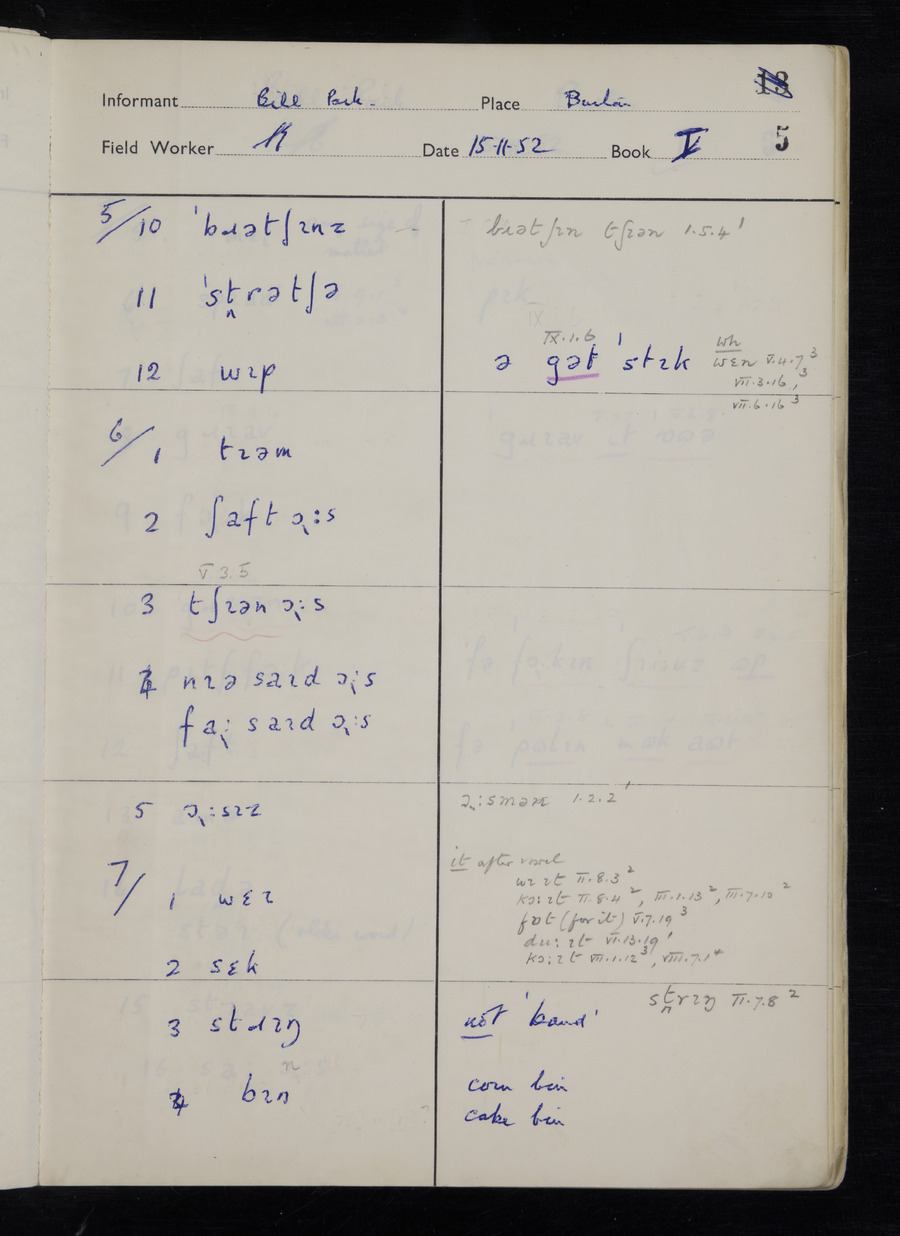 13
Informant Bill Park. Place Burton
5
Field Worker Date 15·11·52 Book V
5/10 ˈbɹɪətʃɪnz
bɹɪətʃɪn tʃɪən 1.5.4¹
11 ˈst̪rətʃə
IX.1.6
12 wɪp
ə gət ˈstɪk
wh
wɛn V.4.7³
VII.3.16³,
VII.6.16³
6/1 tɪəm
2 ʃaft ɔ˞:s
V 3.5
3 tʃɪən ɔ˞:s
4 nɪə saɪd ɔ˞:s
fa˞: saɪd ɔ˞:s
5 ɔ˞:sɪz
ɔ˞:smən 1.2.2¹
it after vowel
wɪ ɪt II.8.3²
kɔ:ɪt II.8.4², III.1.13², III.7.10²
fɒt (for it) V.7.19³
du: ɪt VI.13.19¹
kɔ:ɪt VII.1.12³, VIII.7.1⁴
7/1 wɛɪ
2 sɛk
3 stɹɪŋ
st̪rɪŋ II.7.8²
not 'band'
4 bɪn
corn bin
cake bin